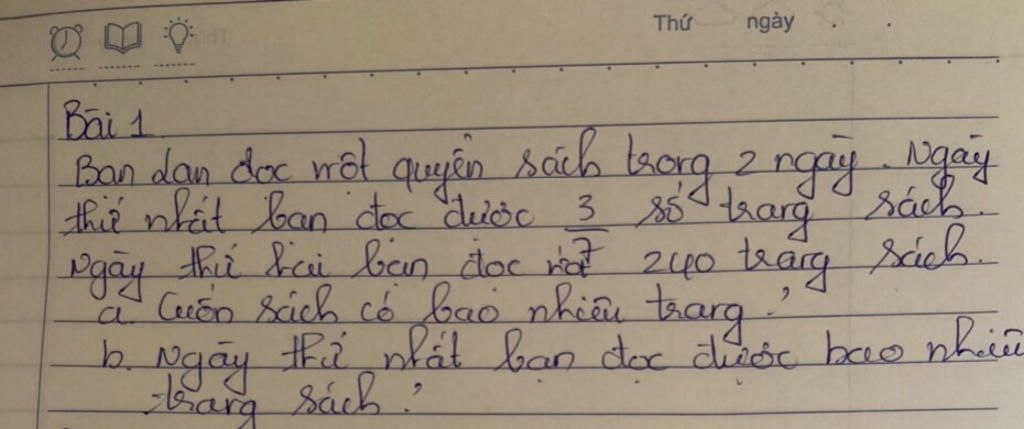 Thứ ngày
Bài 1
Bạn lan đọc một quyển sách trong 2 ngày. Ngày
thứ nhất bạn đọc được 3/7 số trang sách.
Ngày thứ hai bạn đọc nốt 240 trang sách.
a. Cuốn sách có bao nhiêu trang?
b. Ngày thứ nhất bạn đọc được bao nhiêu
trang sách?